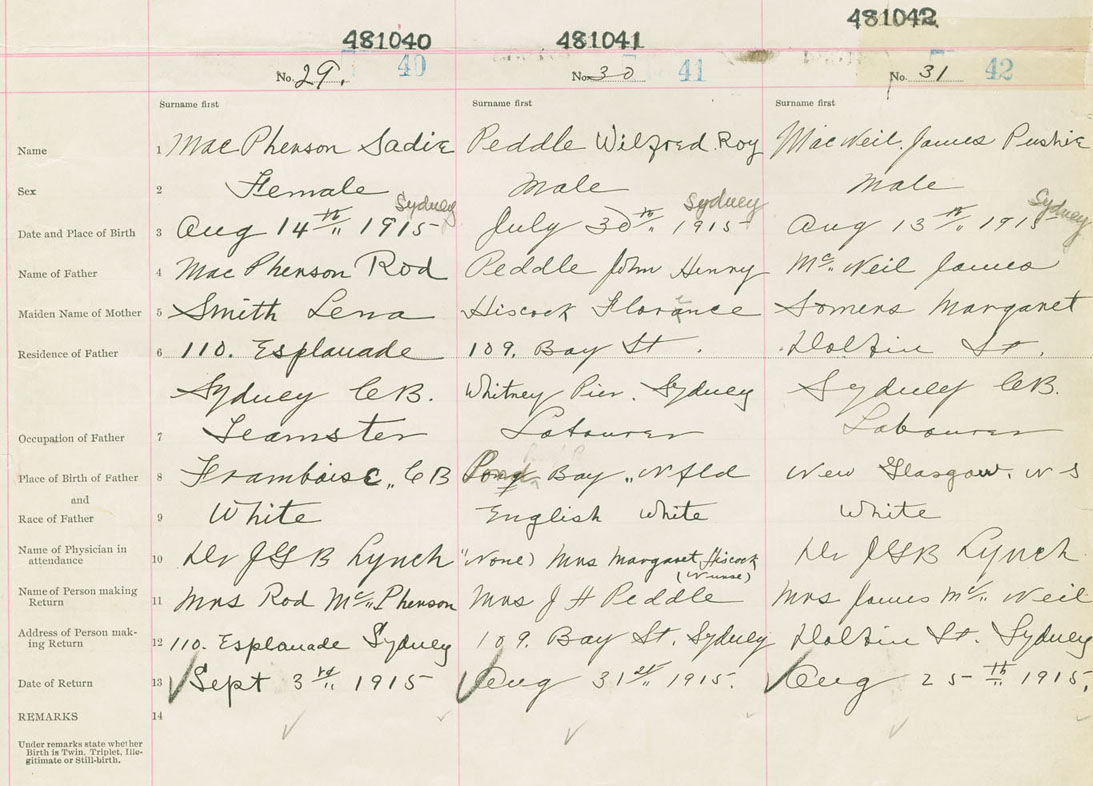 481040 481041 481042
No. 29. 40 No. 30 41 No. 31 42
Surname first Surname first Surname first
Name 1 MacPherson Sadie Peddle Wilfred Roy MacNeil James Pushie
Sex 2 Female Male Male
Sydney Sydney Sydney
Date and Place of Birth 3 Aug 14th 1915 July 30th 1915 Aug 13th 1915
Name of Father 4 MacPherson Rod Peddle John Henry Mc Neil James
Maiden Name of Mother 5 Smith Lena Hiscock Florance Somers Margaret
Residence of Father 6 110. Esplanade 109. Bay St. St.
Sydney C B. Whitney Pier. Sydney Sydney C B.
Occupation of Father 7 Teamster Labourer Labourer
Place of Birth of Father 8 Framboise, C B Bay Nfld New Glasgow. N S
and
Race of Father 9 White English White White
Name of Physician in attendance 10 Dr J G B Lynch (None) Mrs Margaret Hiscock Dr J G B Lynch
(Nurse)
Name of Person making Return 11 Mrs Rod McPherson Mrs J H Peddle Mrs James Mc Neil
Address of Person mak-
ing Return 12 110. Esplanade Sydney 109. Bay St. Sydney St. Sydney
Date of Return 13 Sept 3rd 1915 Aug 31st 1915. Aug 25th 1915.
REMARKS 14
Under remarks state whether
Birth is Twin, Triplet, Ille-
gitimate or Still-birth.